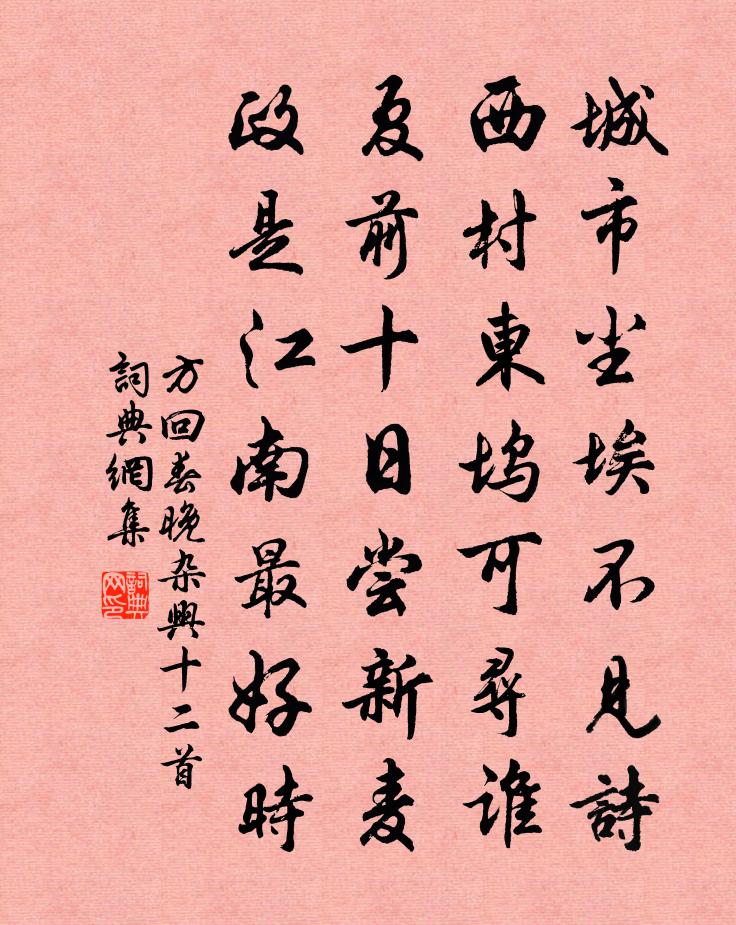 城市尘埃不见詩
西村東坞可尋谁
夏前十日尝新麦
政是江南最好時
方回春晚杂興十二首
詞典網集
詞典网印